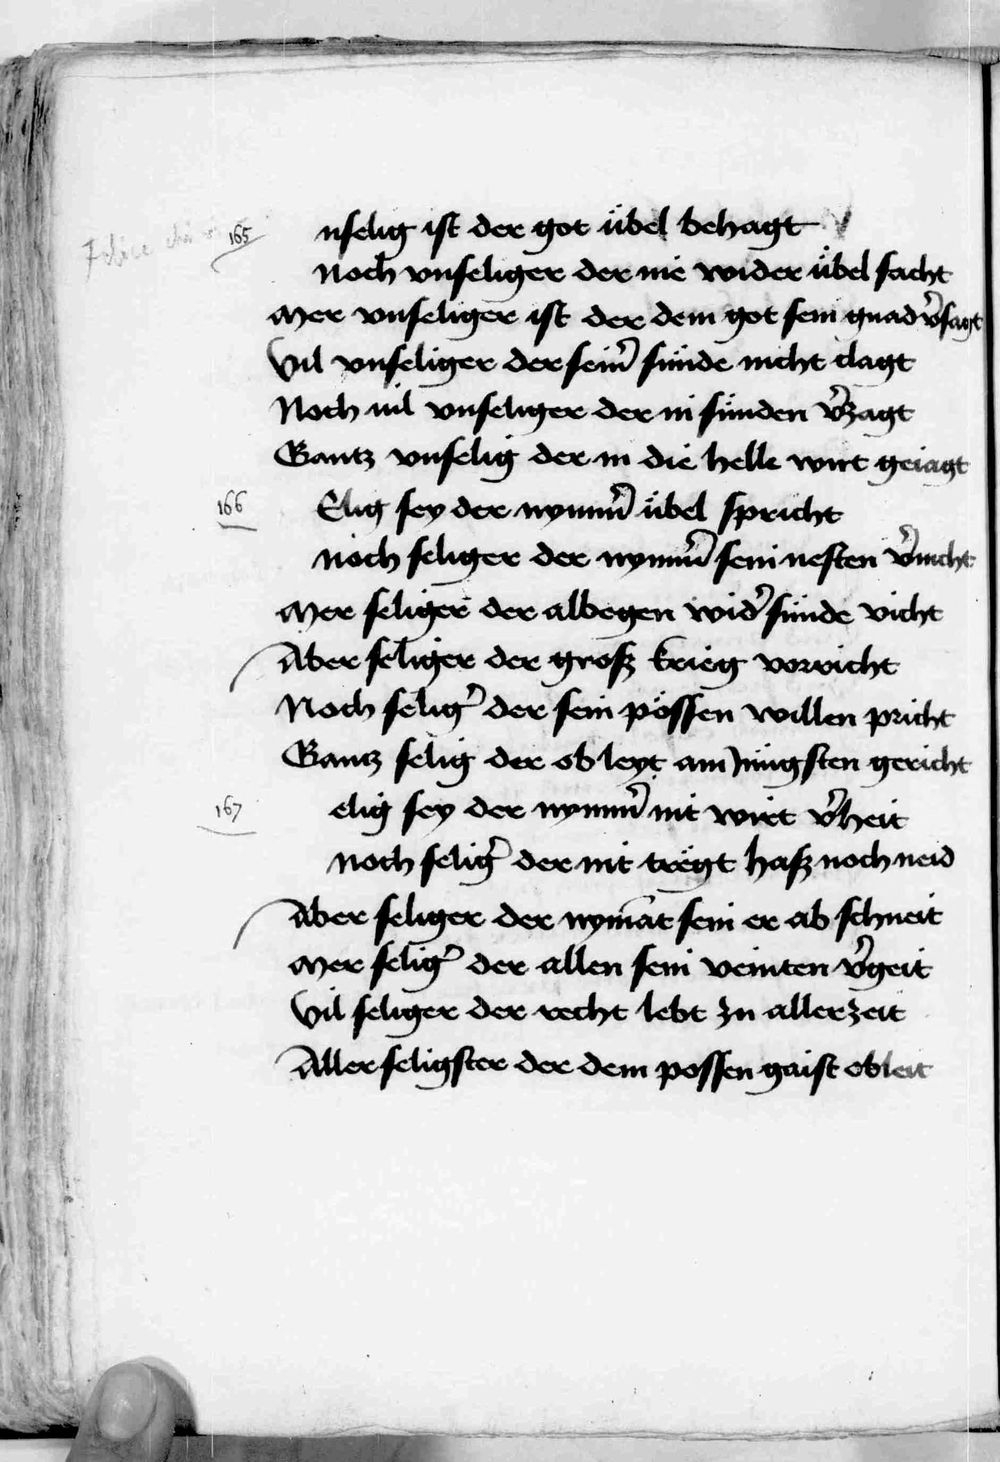 165 nselig ist der got übel behagt
Noch vnseliger der nie wider übel facht
Mer vnseliger ist der dem got sein gnad v̉sagt
Vil vnseliger der sein̉ sünde nicht clagt
Noch vil vnseliger der in sünden v̉zagt
Gantz vnselig der in die helle wirt geiagt
166 Elig sey der nymm̉ übel spricht
Noch seliger der nymm̉ sein nesten v̉nicht
Mer seliger der albegen wid̉ sünde vicht
Aber seliger der grosz krieg vorricht
Noch selig̉ der sein pössen willen pricht
Gantz selig der ob leyt am Jüngsten gericht
167 elig sey der nymm̉ nit wirt v̉heit
Noch selig̉ der nit tregt hasz noch neid
Aber seliger der nymāt sein er ab schneit
Mer selig̉ der allen sein veinten v̉geit
Vil seliger der recht lebt zu aller zeit
Aller seligster der dem possen gaist obleit